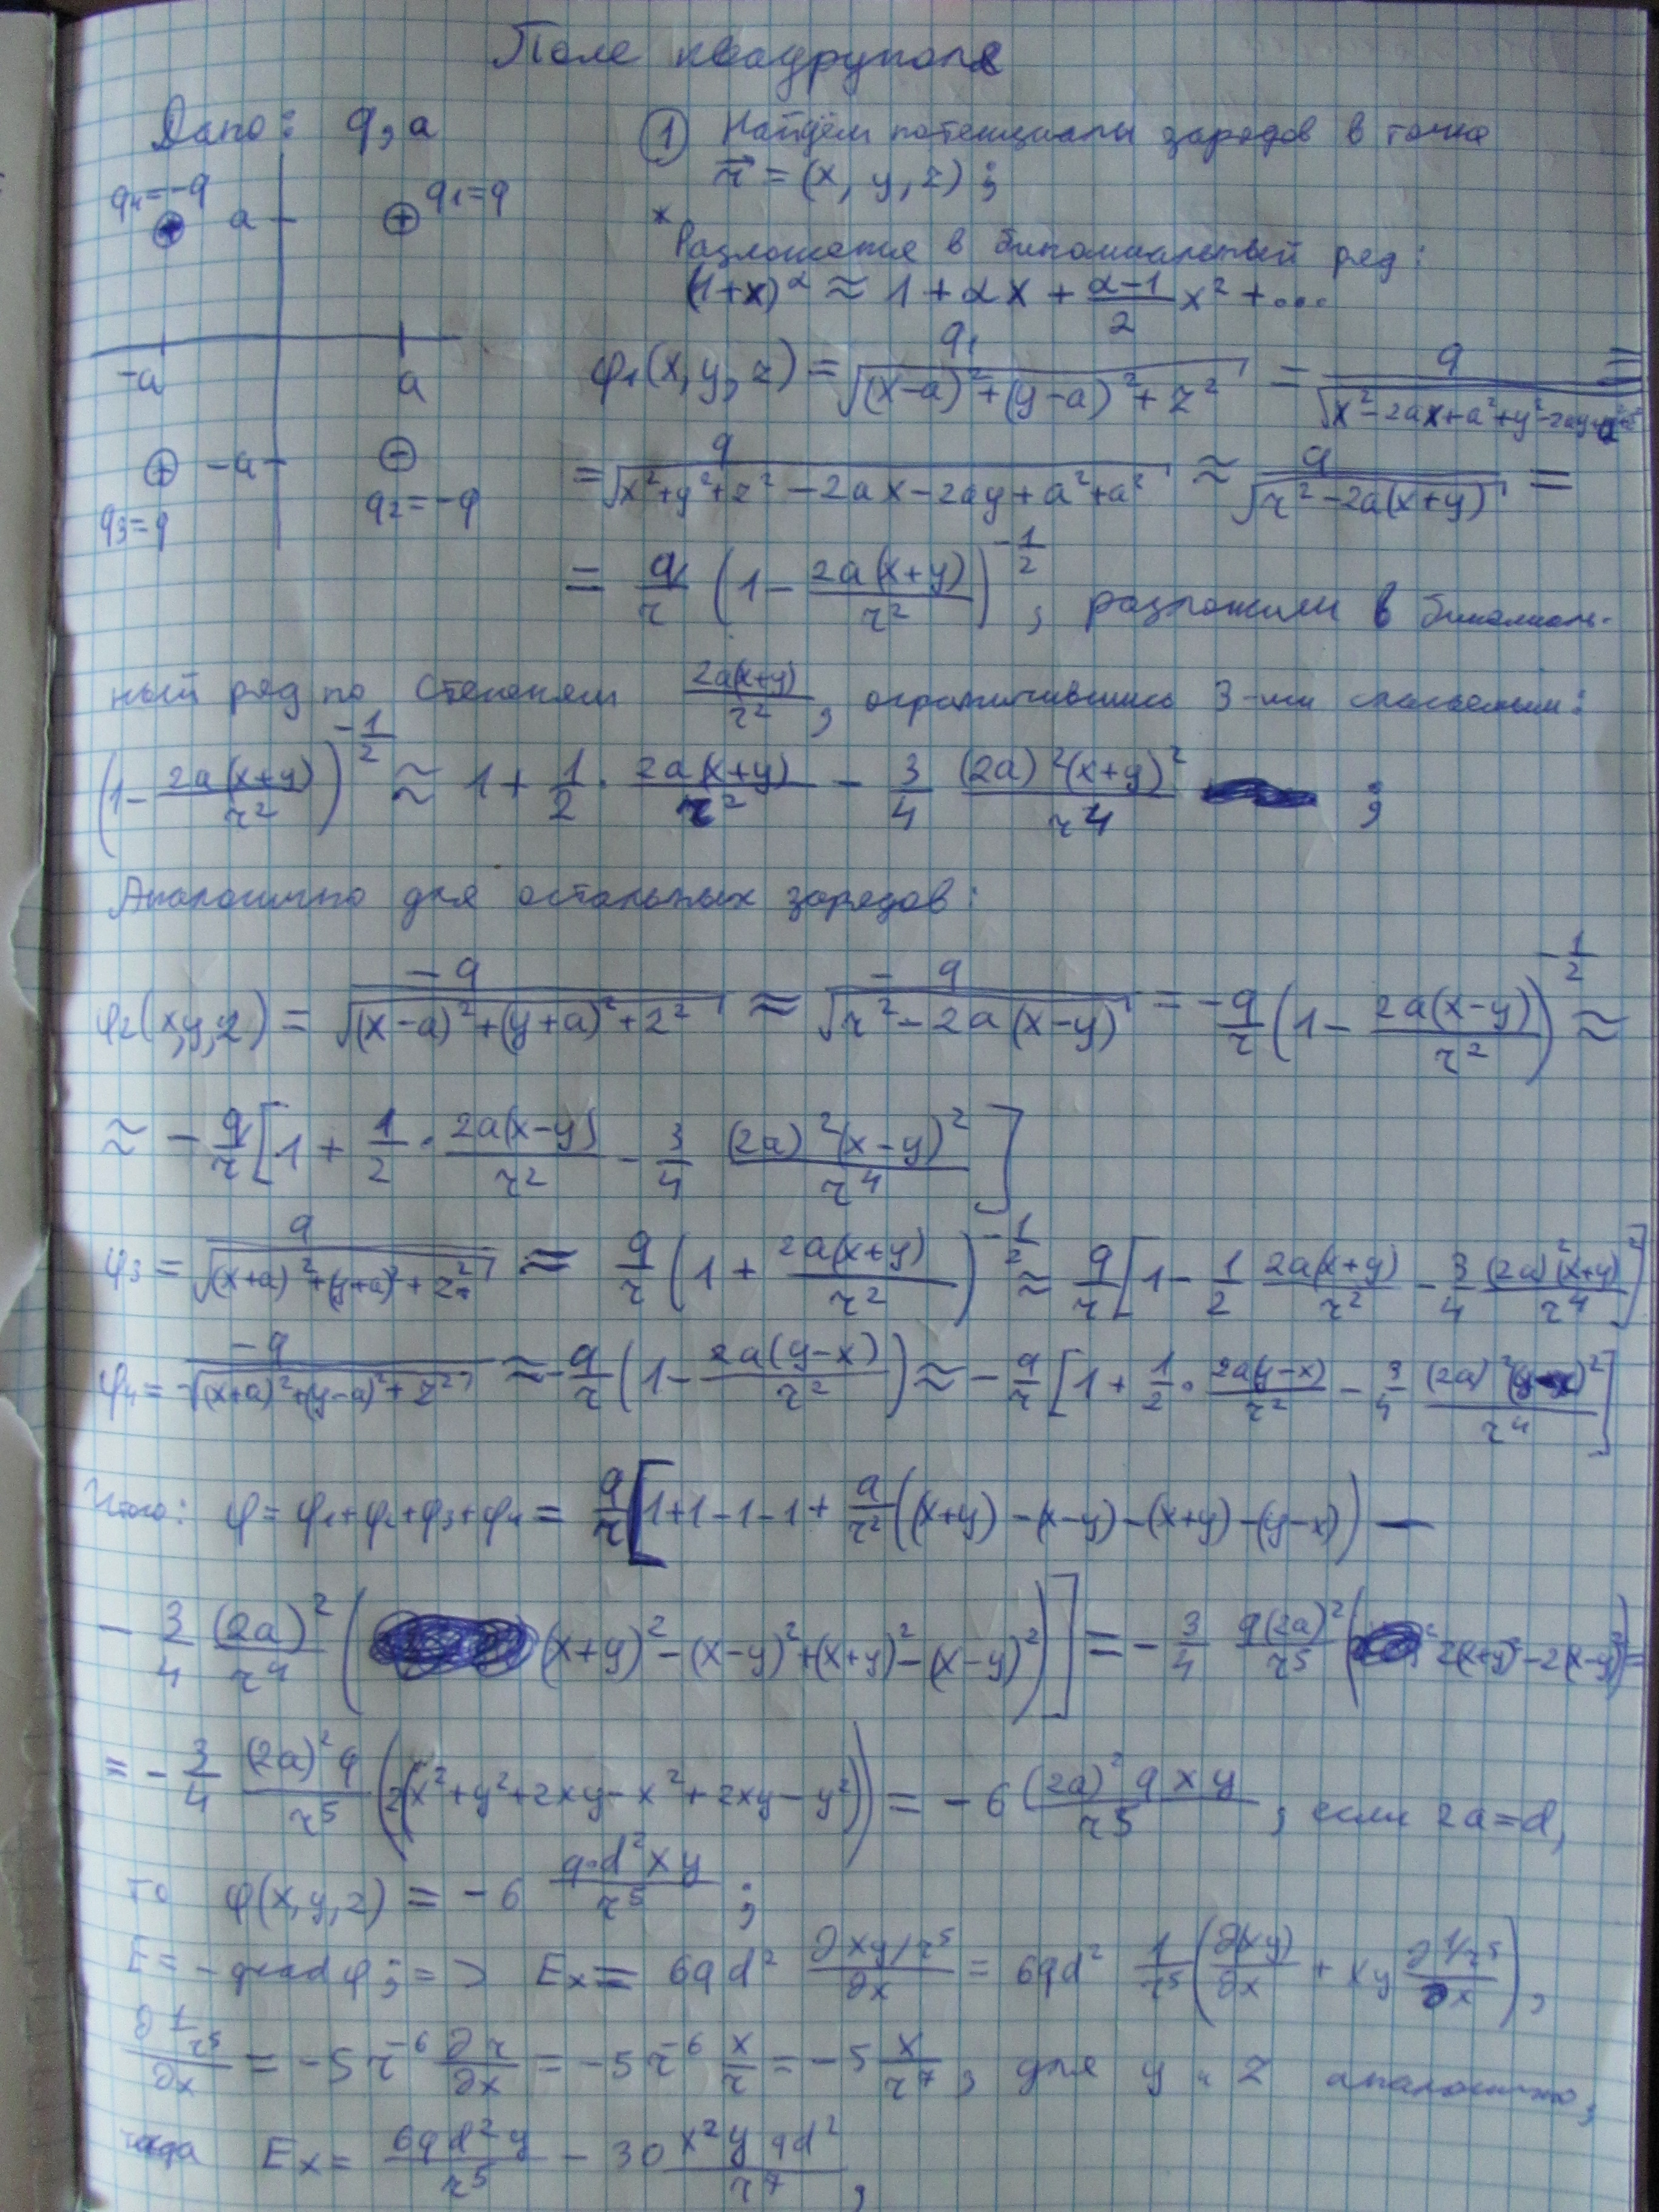 Поле квадруполя
Дано: q, a
q₄=-q a q₁=q
-a a
-a
q₃=q q₂=-q
① Найдём потенциалы зарядов в точке
r⃗ = (x, y, z);
* Разложение в биномиальный ряд:
(1+x)^α ≈ 1 + αx + (α-1)/2 x² + ...
φ₁(x, y, z) = q₁/√((x-a)²+(y-a)²+z²) = q/√(x²-2ax+a²+y²-2ay+a²+z²) =
= q/√(x²+y²+z²-2ax-2ay+a²+a²) ≈ q/√(r²-2a(x+y)) =
= q/r (1 - 2a(x+y)/r²)^(-1/2), разложили в биномиаль-
ный ряд по степеням 2a(x+y)/r², ограничившись 3-мя слагаемыми:
(1 - 2a(x+y)/r²)^(-1/2) ≈ 1 + 1/2 · 2a(x+y)/r² - 3/4 (2a)²(x+y)²/r⁴ ;
Аналогично для остальных зарядов:
φ₂(x,y,z) = -q/√((x-a)²+(y+a)²+z²) ≈ -q/√(r²-2a(x-y)) = -q/r (1 - 2a(x-y)/r²)^(-1/2) ≈
≈ - q/r [1 + 1/2 · 2a(x-y)/r² - 3/4 (2a)²(x-y)²/r⁴]
φ₃ = q/√((x+a)²+(y+a)²+z²) ≈ q/r (1 + 2a(x+y)/r²)^(-1/2) ≈ q/r [1 - 1/2 2a(x+y)/r² - 3/4 (2a)²(x+y)²/r⁴]
φ₄ = -q/√((x+a)²+(y-a)²+z²) ≈ -q/r (1 - 2a(y-x)/r²) ≈ - q/r [1 + 1/2 · 2a(y-x)/r² - 3/4 (2a)²(y-x)²/r⁴]
Итого: φ = φ₁+φ₂+φ₃+φ₄ = q/r [1+1-1-1 + a/r² ((x+y) -(x-y) -(x+y) -(y-x)) -
- 3/4 (2a)²/r⁴ ((x+y)² - (x-y)² + (x+y)² - (x-y)²)] = - 3/4 q(2a)²/r⁵ (2(x+y)² - 2(x-y)²) =
= - 3/4 (2a)²q/r⁵ (2(x²+y²+2xy-x²+2xy-y²)) = -6 (2a)²qxy/r⁵, если 2a=d,
то φ(x,y,z) = -6 q·d²xy/r⁵ ;
E = -grad φ; => Eₓ = 6qd² ∂xy/r⁵/∂x = 6qd² 1/r⁵ (∂(xy)/∂x + xy ∂1/r⁵/∂x),
∂ 1/r⁵/∂x = -5r⁻⁶ ∂r/∂x = -5r⁻⁶ x/r = -5 x/r⁷, для y и z аналогично,
тогда Eₓ = 6qd²y/r⁵ - 30 x²y qd²/r⁷,